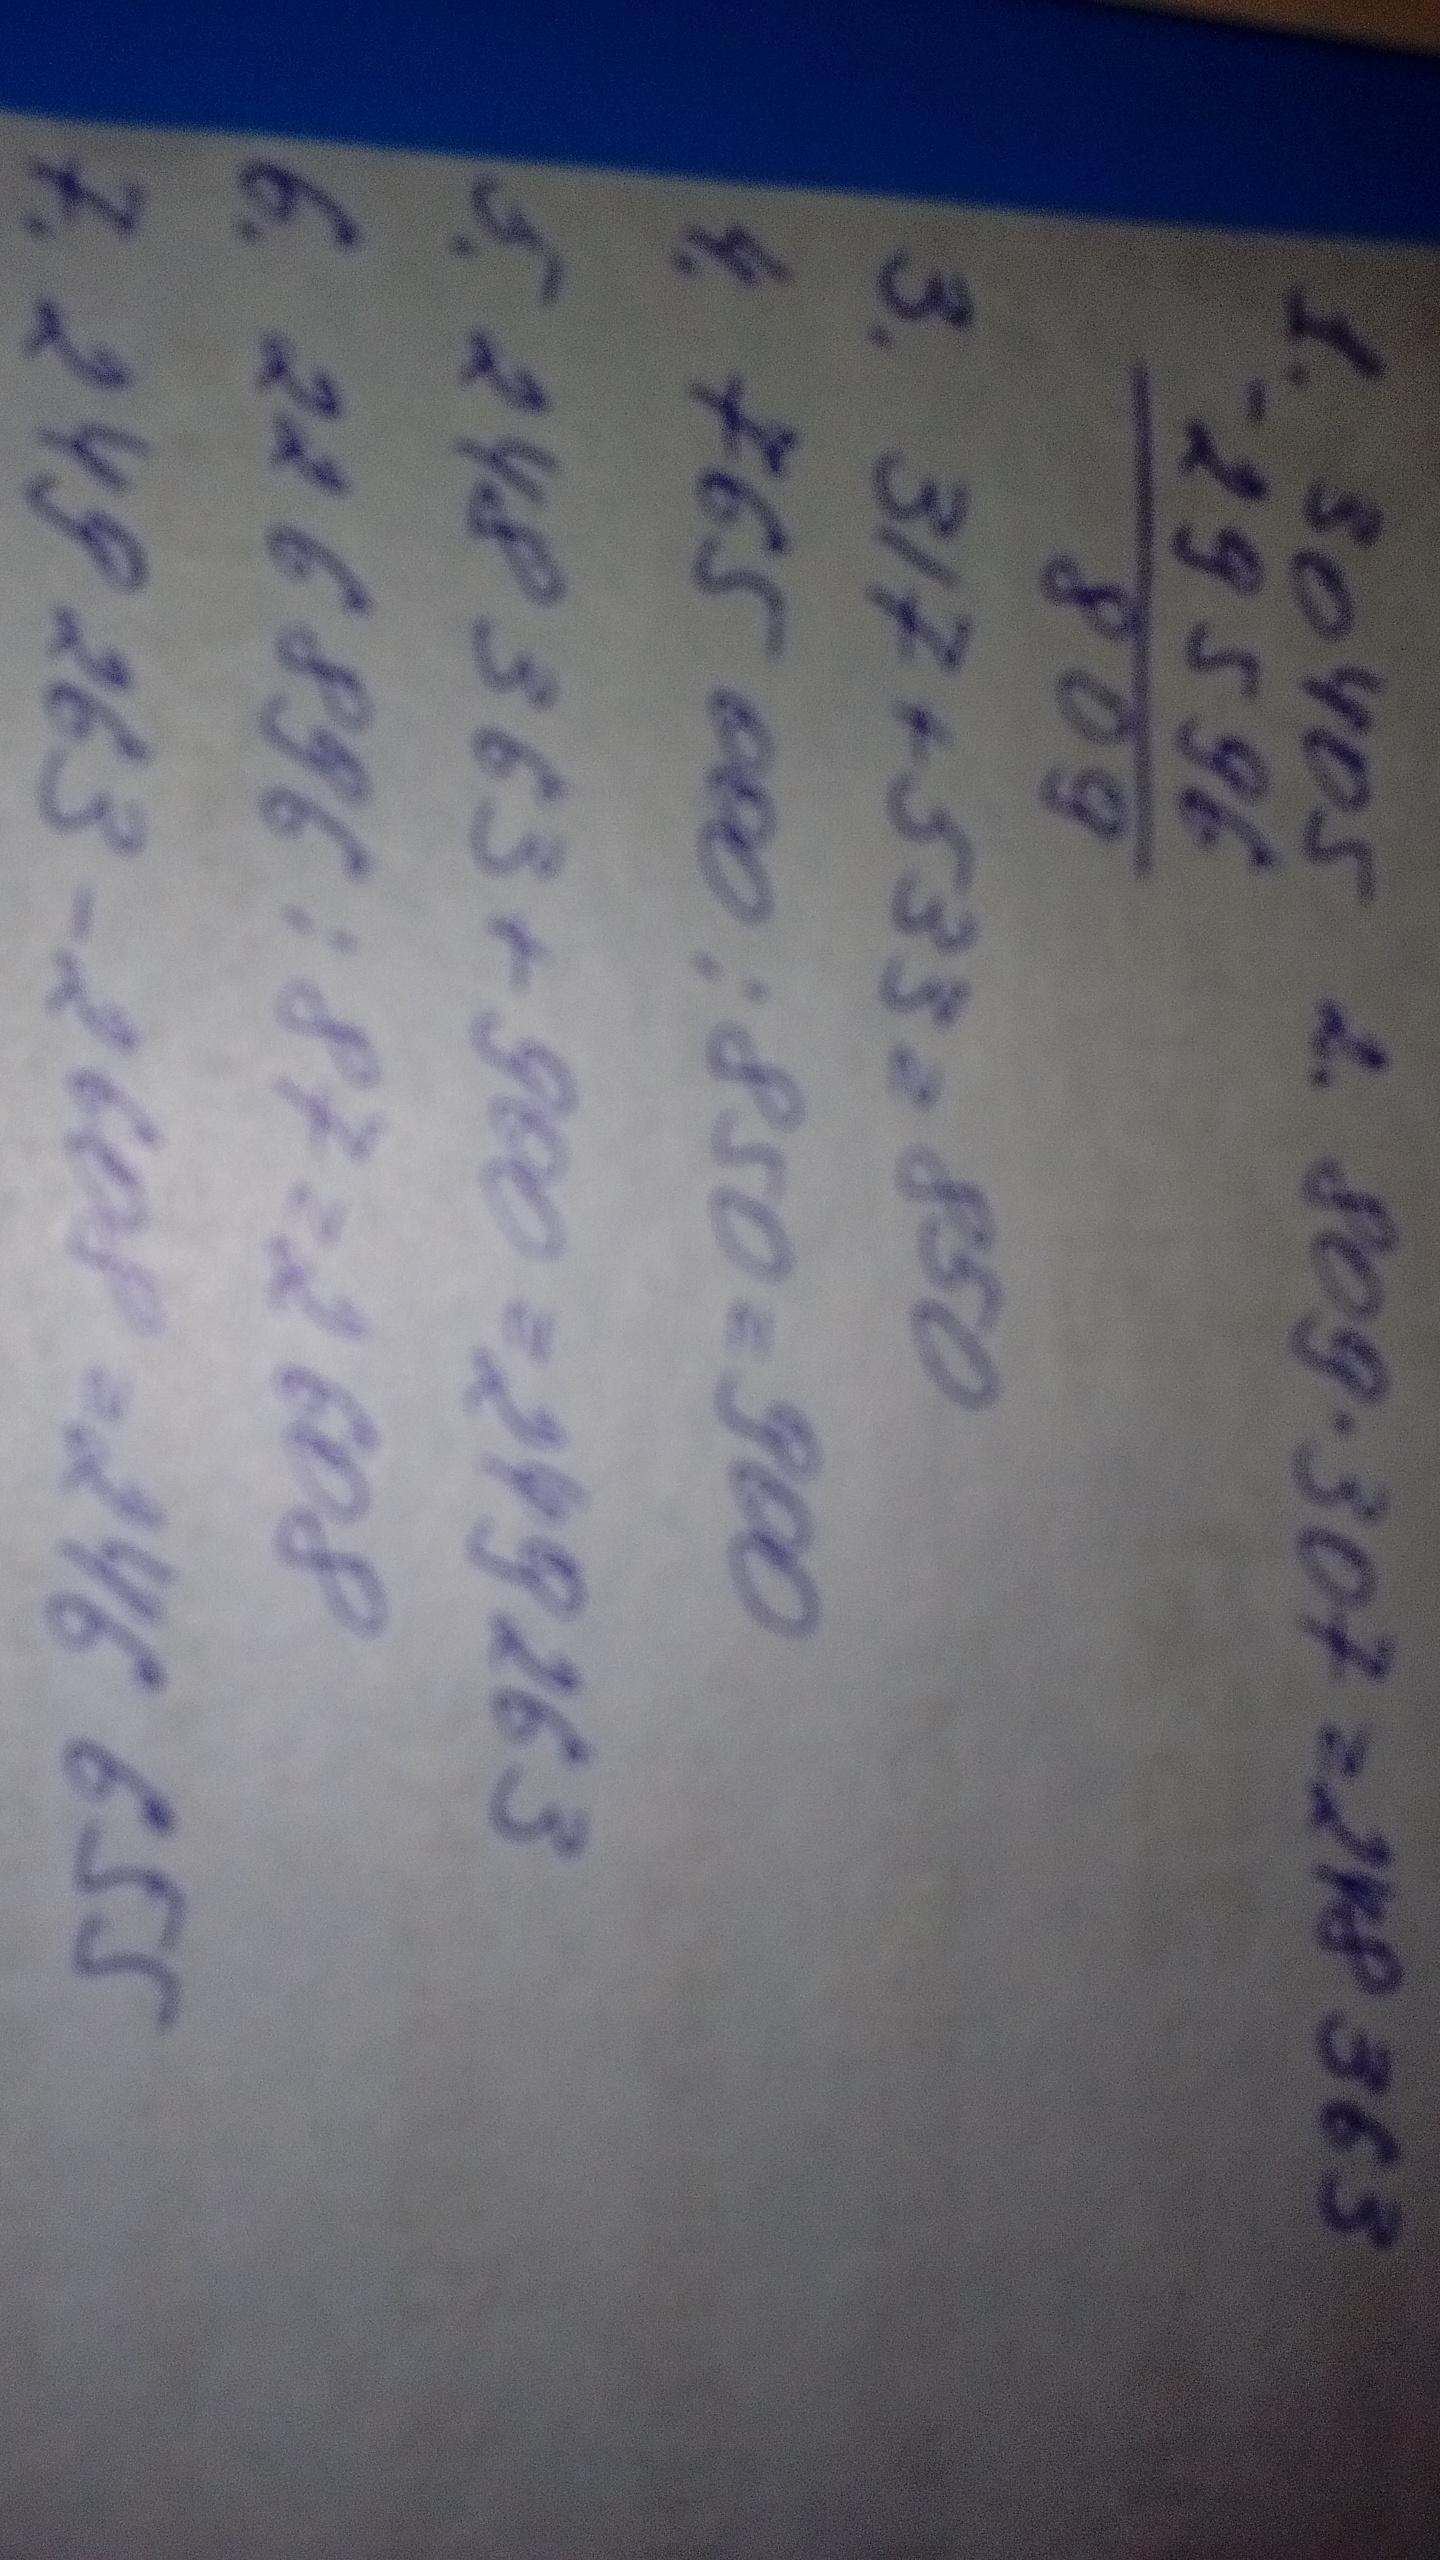 1. 30405 2. 809·307=248363
-29596
809
3. 317+533=850
4. 765 000:850=900
5. 248363+900=249263
6. 226896:87=2608
7. 249263-2608=246 655